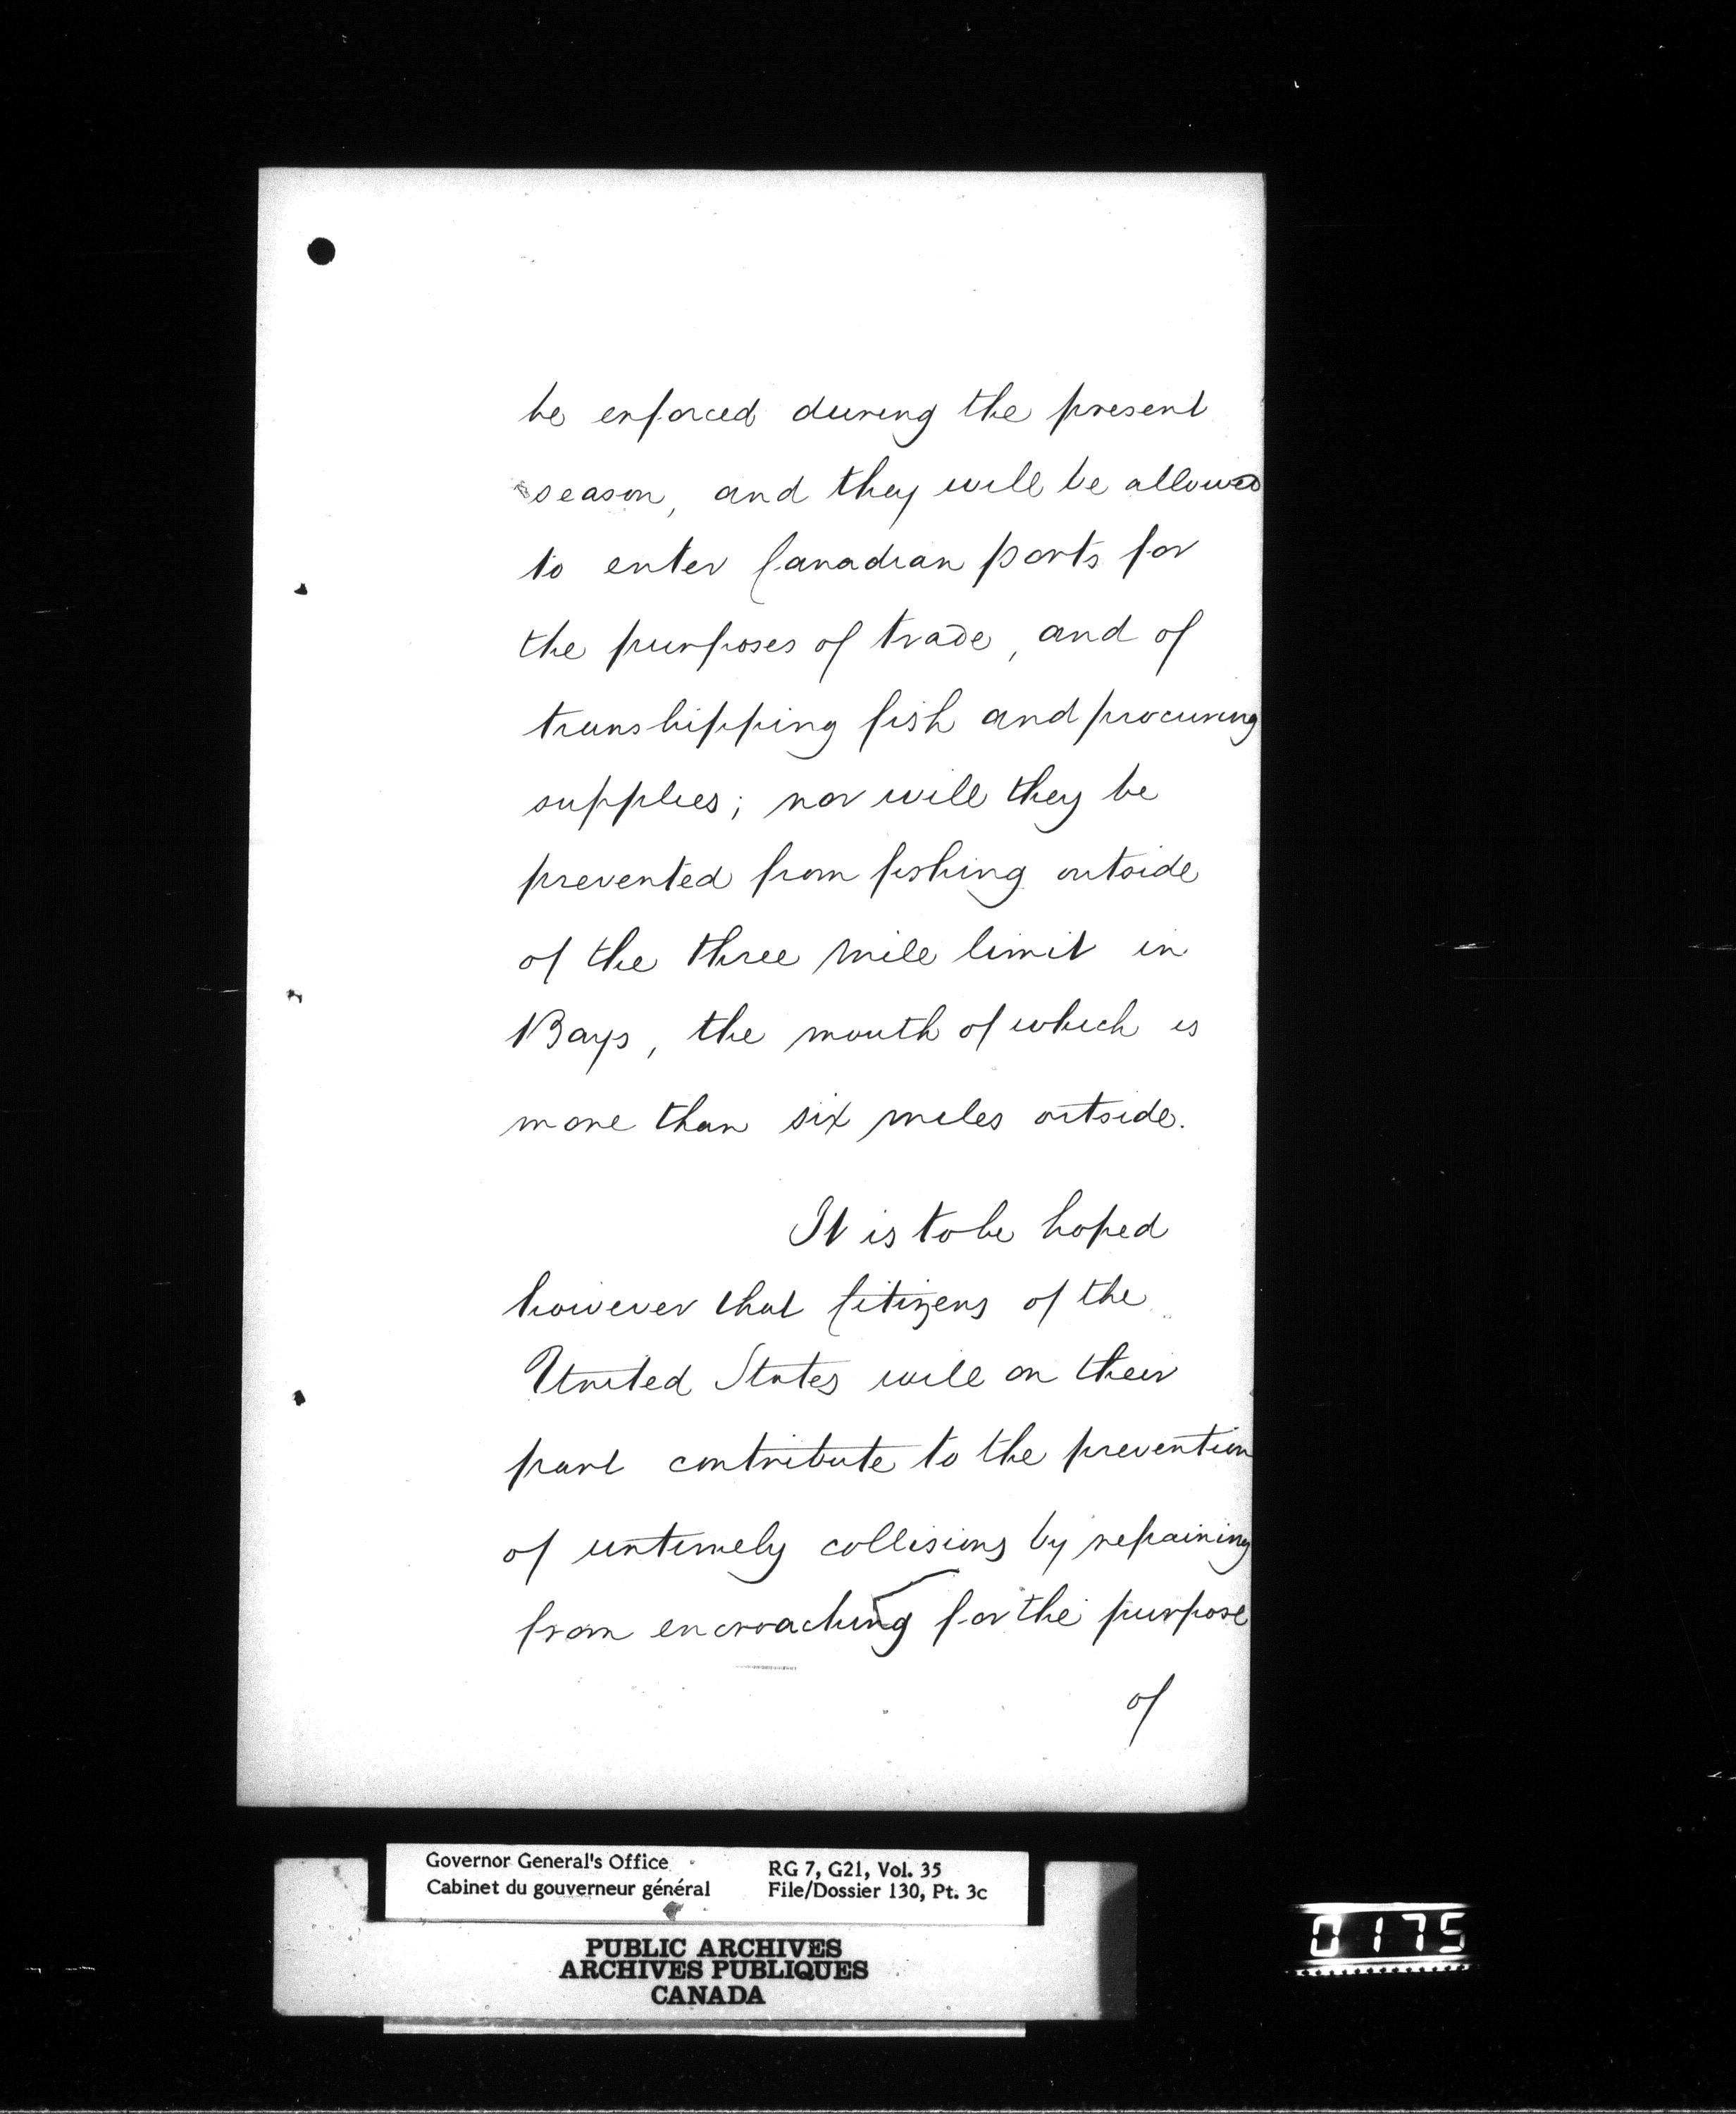 be enforced during the present
season, and they will be allowed
to enter Canadian ports for
the purposes of trade, and of
transhipping fish and procuring
supplies; nor will they be
prevented from fishing outside
of the three mile limit in
Bays, the mouth of which is
more than six miles outside.
It is to be hoped
however that Citizens of the
United States will on their
part contribute to the prevention
of untimely collisions by refraining
from encroaching for the purpose
of
Governor General's Office
Cabinet du gouverneur général
RG 7, G21, Vol. 35
File/Dossier 130, Pt. 3c
PUBLIC ARCHIVES
ARCHIVES PUBLIQUES
CANADA
0175